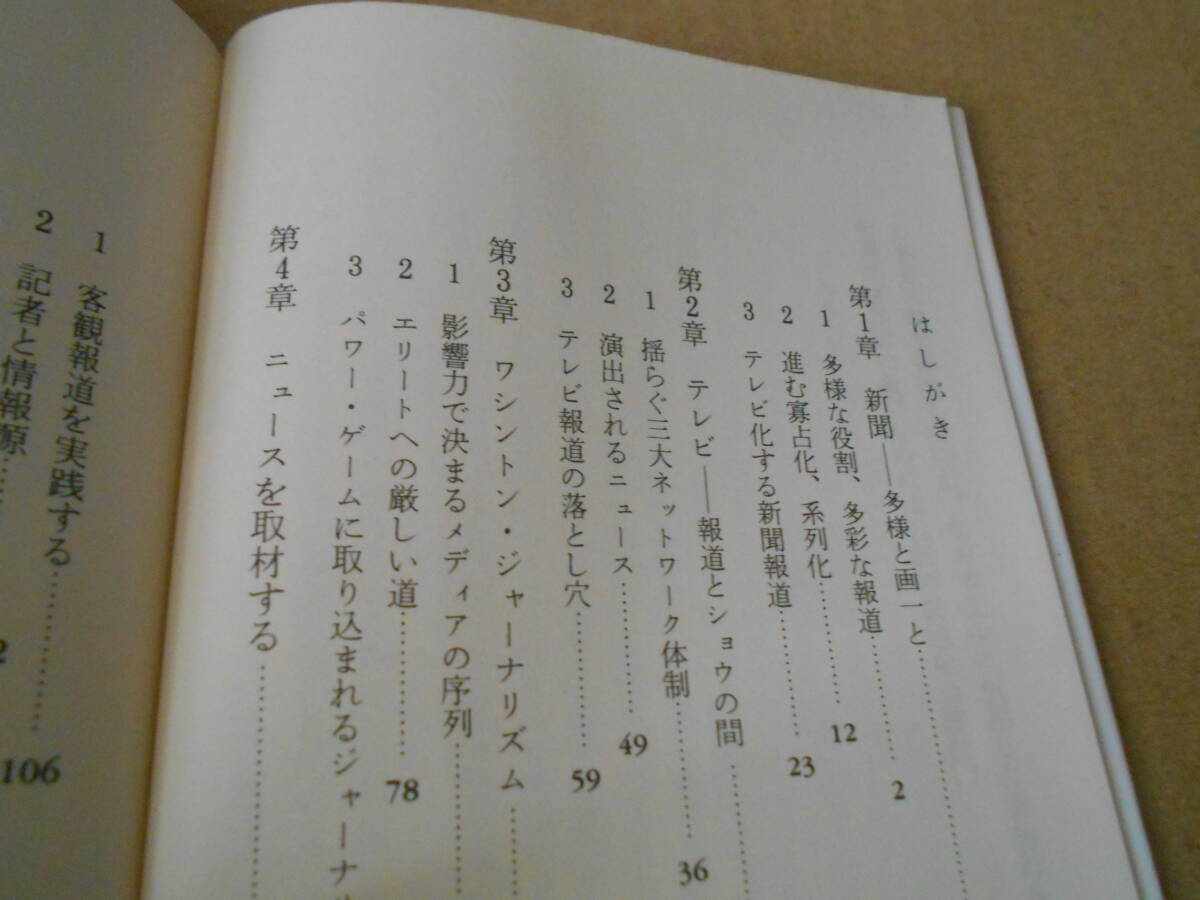 はしがき
第1章 新聞――多様と画一と……………
1 多様な役割、多彩な報道…………2
2 進む寡占化、系列化…………12
3 テレビ化する新聞報道…………23
第2章 テレビ――報道とショウの間…………
1 揺らぐ三大ネットワーク体制…………36
2 演出されるニュース…………49
3 テレビ報道の落とし穴…………59
第3章 ワシントン・ジャーナリズム…………
1 影響力で決まるメディアの序列…………
2 エリートへの厳しい道…………78
3 パワー・ゲームに取り込まれるジャーナ
第4章 ニュースを取材する…………
1 客観報道を実践する…………106
2 記者と情報源…………